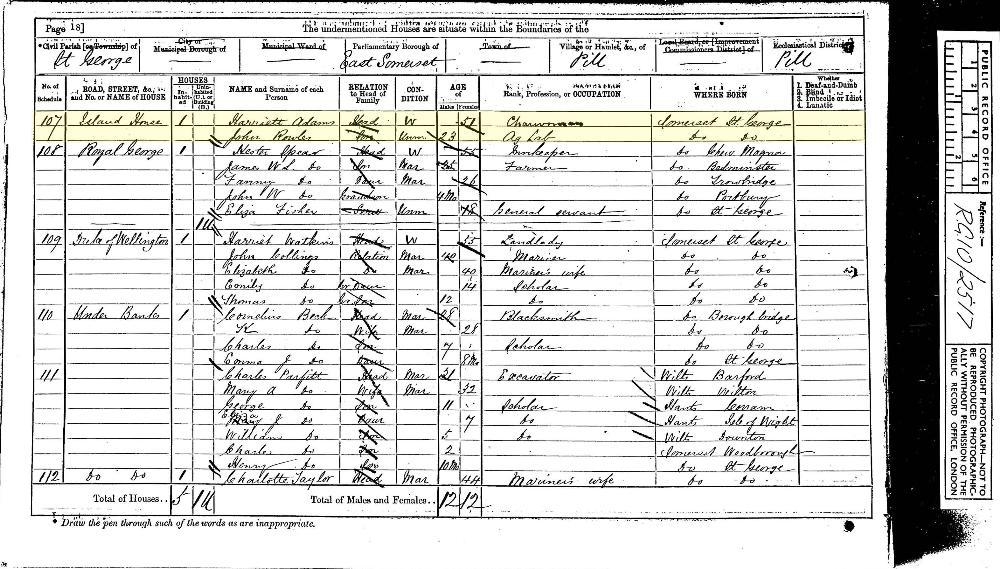 Page 18]
The undermentioned Houses are situate within the Boundaries of the
Civil Parish [or Township] of
City or Municipal Borough of
Municipal Ward of
Parliamentary Borough of
Town of
Village or Hamlet, &c., of
Local Board, or [Improvement Commissioners District] of
Ecclesiastical District of
St George East Somerset Pill Pill
No. of Schedule
ROAD, STREET, &c., and No. or NAME of HOUSE
HOUSES
Inhabited
Uninhabited (U.) or Building (B.)
NAME and Surname of each Person
RELATION to Head of Family
CONDITION
AGE
Males Females
Rank, Profession, or OCCUPATION
WHERE BORN
Whether
1. Deaf-and-Dumb
2. Blind
3. Imbecile or Idiot
4. Lunatic
107 Island House 1 Harriett Adams Head W 51 Charwoman Somerset St. George
John Rowles Son Unm 23 Ag Lab Do Do
108 Royal George 1 Hester W Innkeeper Do Chew Magna
James W L Do Son Mar Farmer Do Bedminster
Fanny Do Daur Mar 26 Do Trowbridge
John W Do Grandson 4 Mo Do Portbury
Eliza Fisher Serv Unm 18 General servant Do St George
1 U
109 Duke of Wellington 1 Harriet Watkins Head W 55 Landlady Somerset St George
John Collings Relation Mar 40 Mariner Do Do
Elizabeth Do Do Mar 40 Mariner's wife Do Do
Emily Do Gr Daur 14 Scholar Do Do
Thomas Do Gr Son 12 Do Do Do
110 Under Banks 1 Cornelius Head Mar 28 Blacksmith Do Borough bridge
K Do Wife Mar 28 Do Do
Charles Do Son 7 Scholar Do Do
Emma J Do Daur 8 Mo Do St George
111 Charles Parfitt Head Mar 31 Excavator Wilts Barford
Mary A Do Wife Mar 32 Wilts Wilton
George Do Son 11 Scholar Hants
Eliza J Do Daur 7 Do Hants Isle of Wight
William Do Son 5 Do Wilts Downton
Charles Do Son 2 Somerset Woodborough
Henry Do Son 10 Mo Do St George
112 Do Do 1 Charlotte Taylor Head Mar 44 Mariner's wife Do Do
Total of Houses.. 5 1U Total of Males and Females.. 12 12
* Draw the pen through such of the words as are inappropriate.
PUBLIC RECORD OFFICE
1 2 3 4 5 6
1 2
Reference :-
RG10/2517
COPYRIGHT PHOTOGRAPH—NOT TO BE REPRODUCED PHOTOGRAPHICALLY WITHOUT PERMISSION OF THE PUBLIC RECORD OFFICE, LONDON